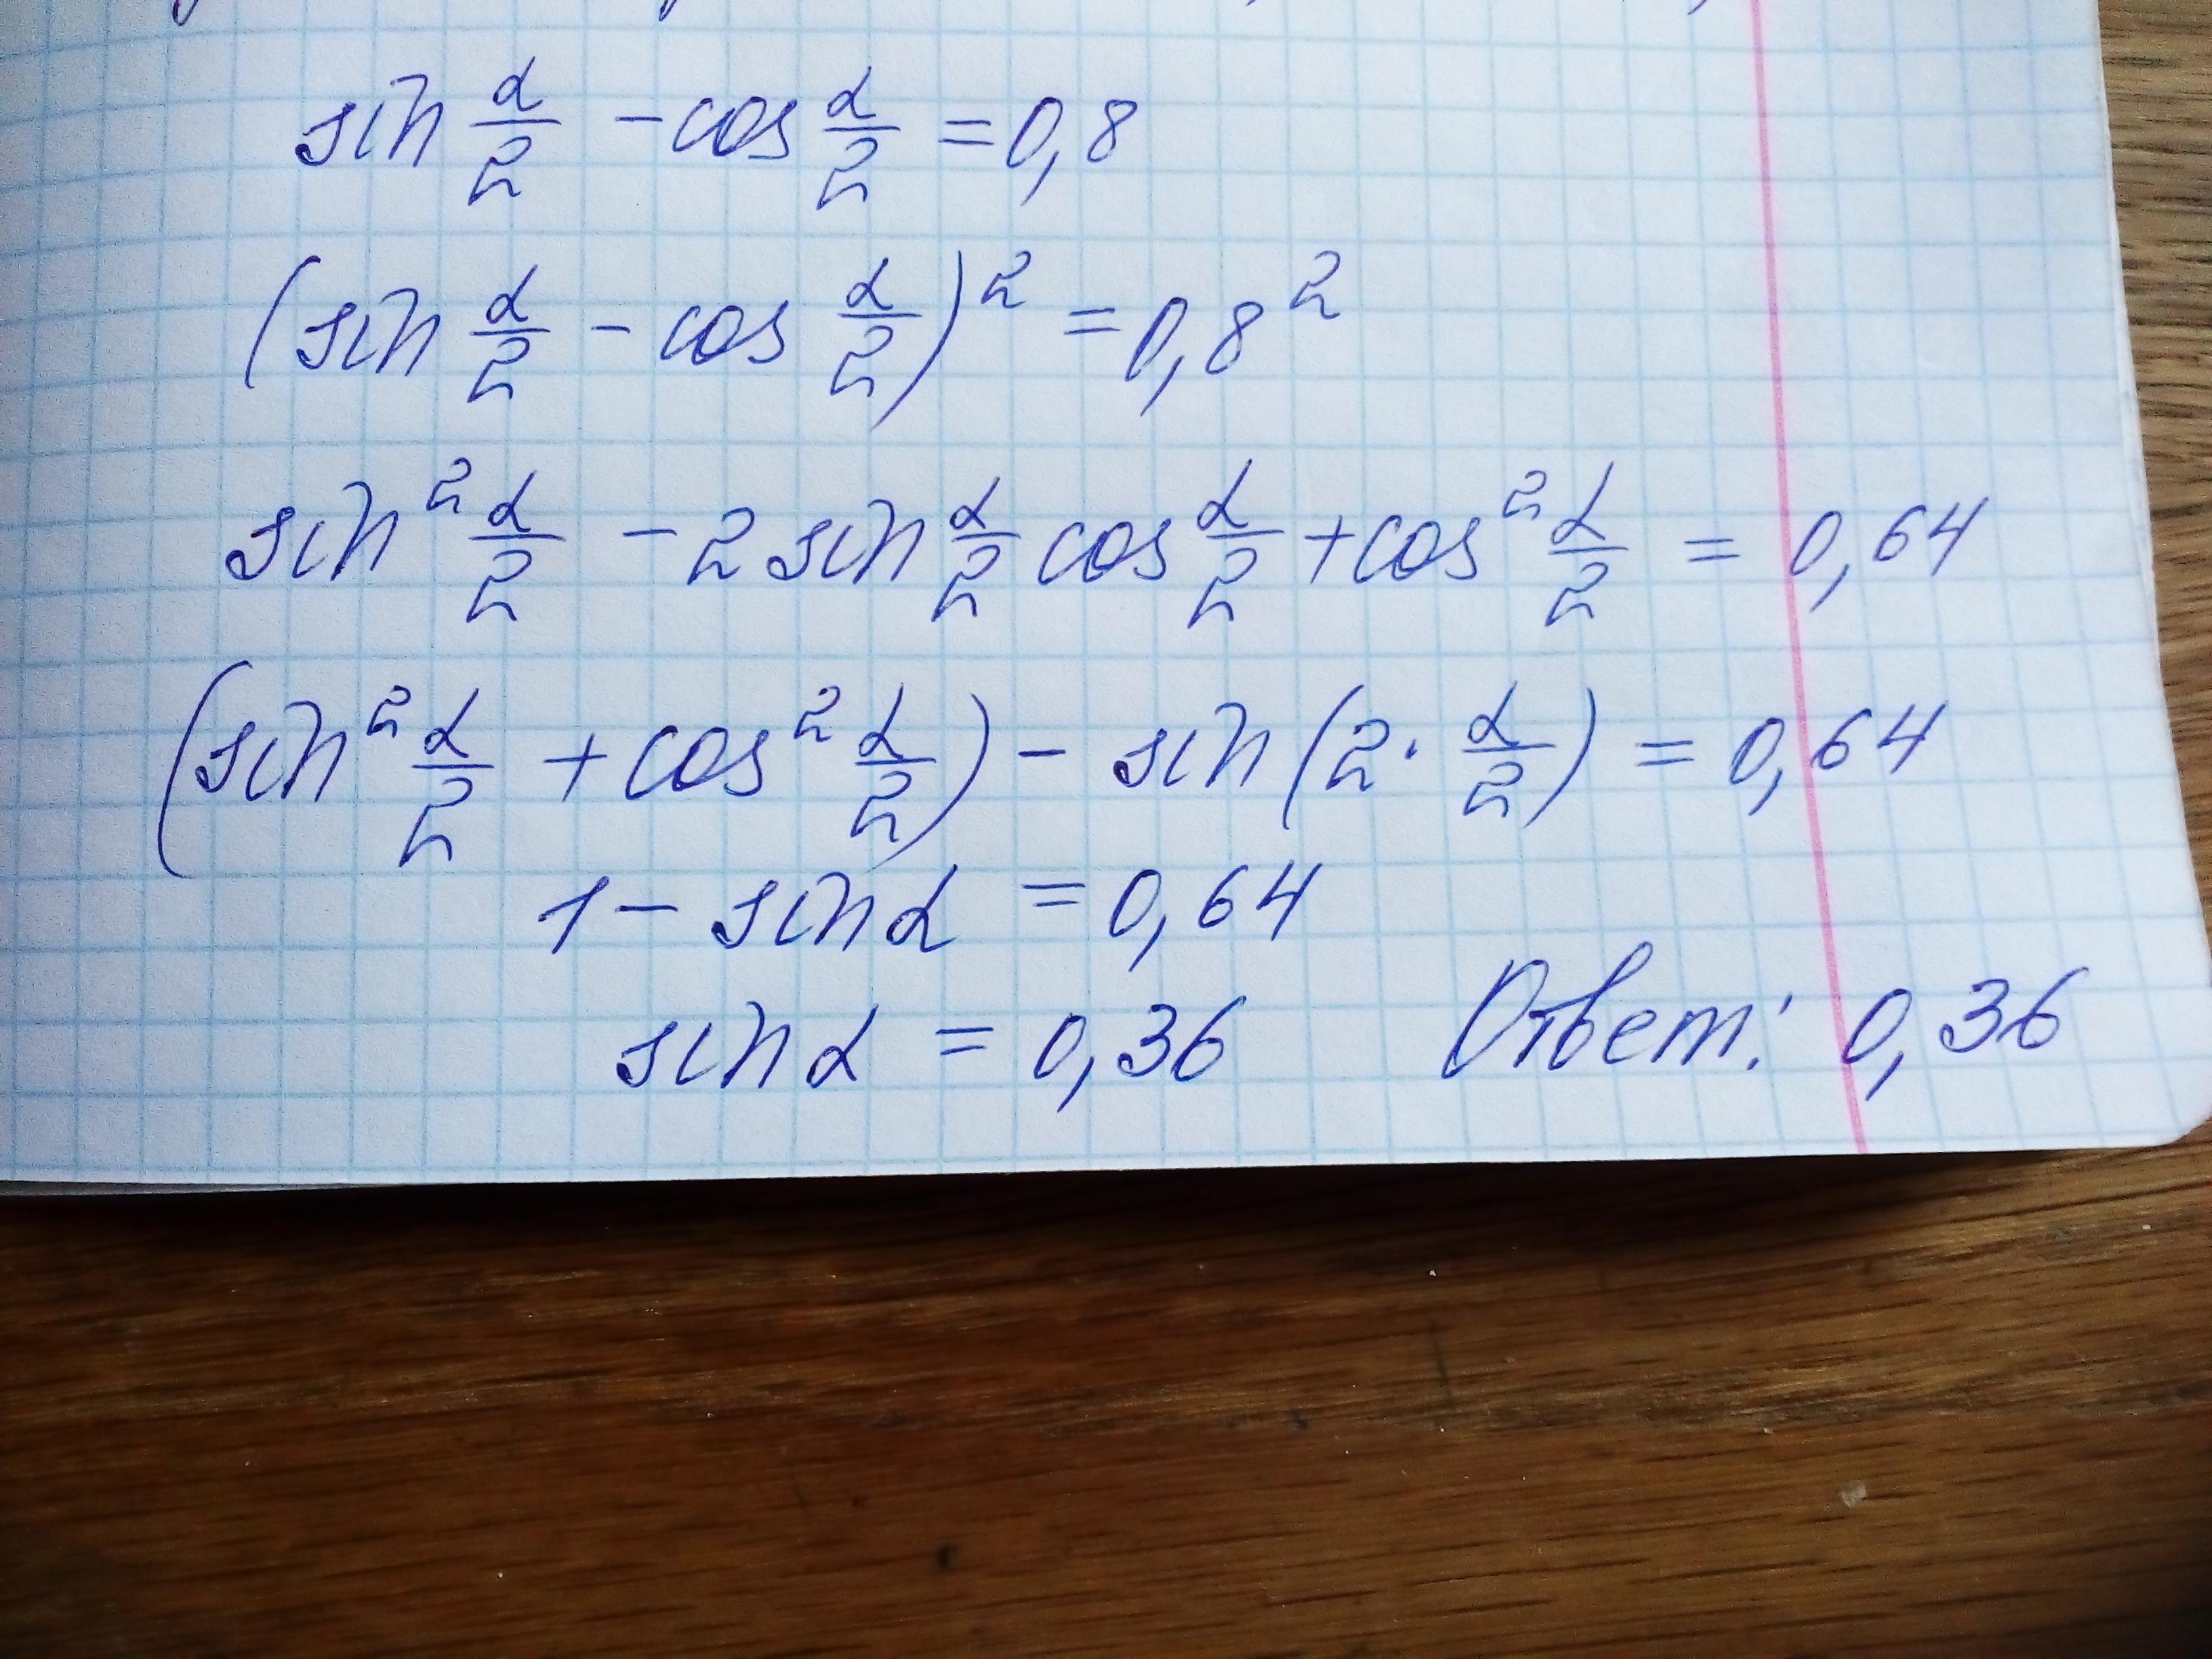 sin α/2 - cos α/2 = 0,8
(sin α/2 - cos α/2)² = 0,8²
sin² α/2 - 2 sin α/2 cos α/2 + cos² α/2 = 0,64
(sin² α/2 + cos² α/2) - sin(2 · α/2) = 0,64
1 - sin α = 0,64
sin α = 0,36 Ответ: 0,36